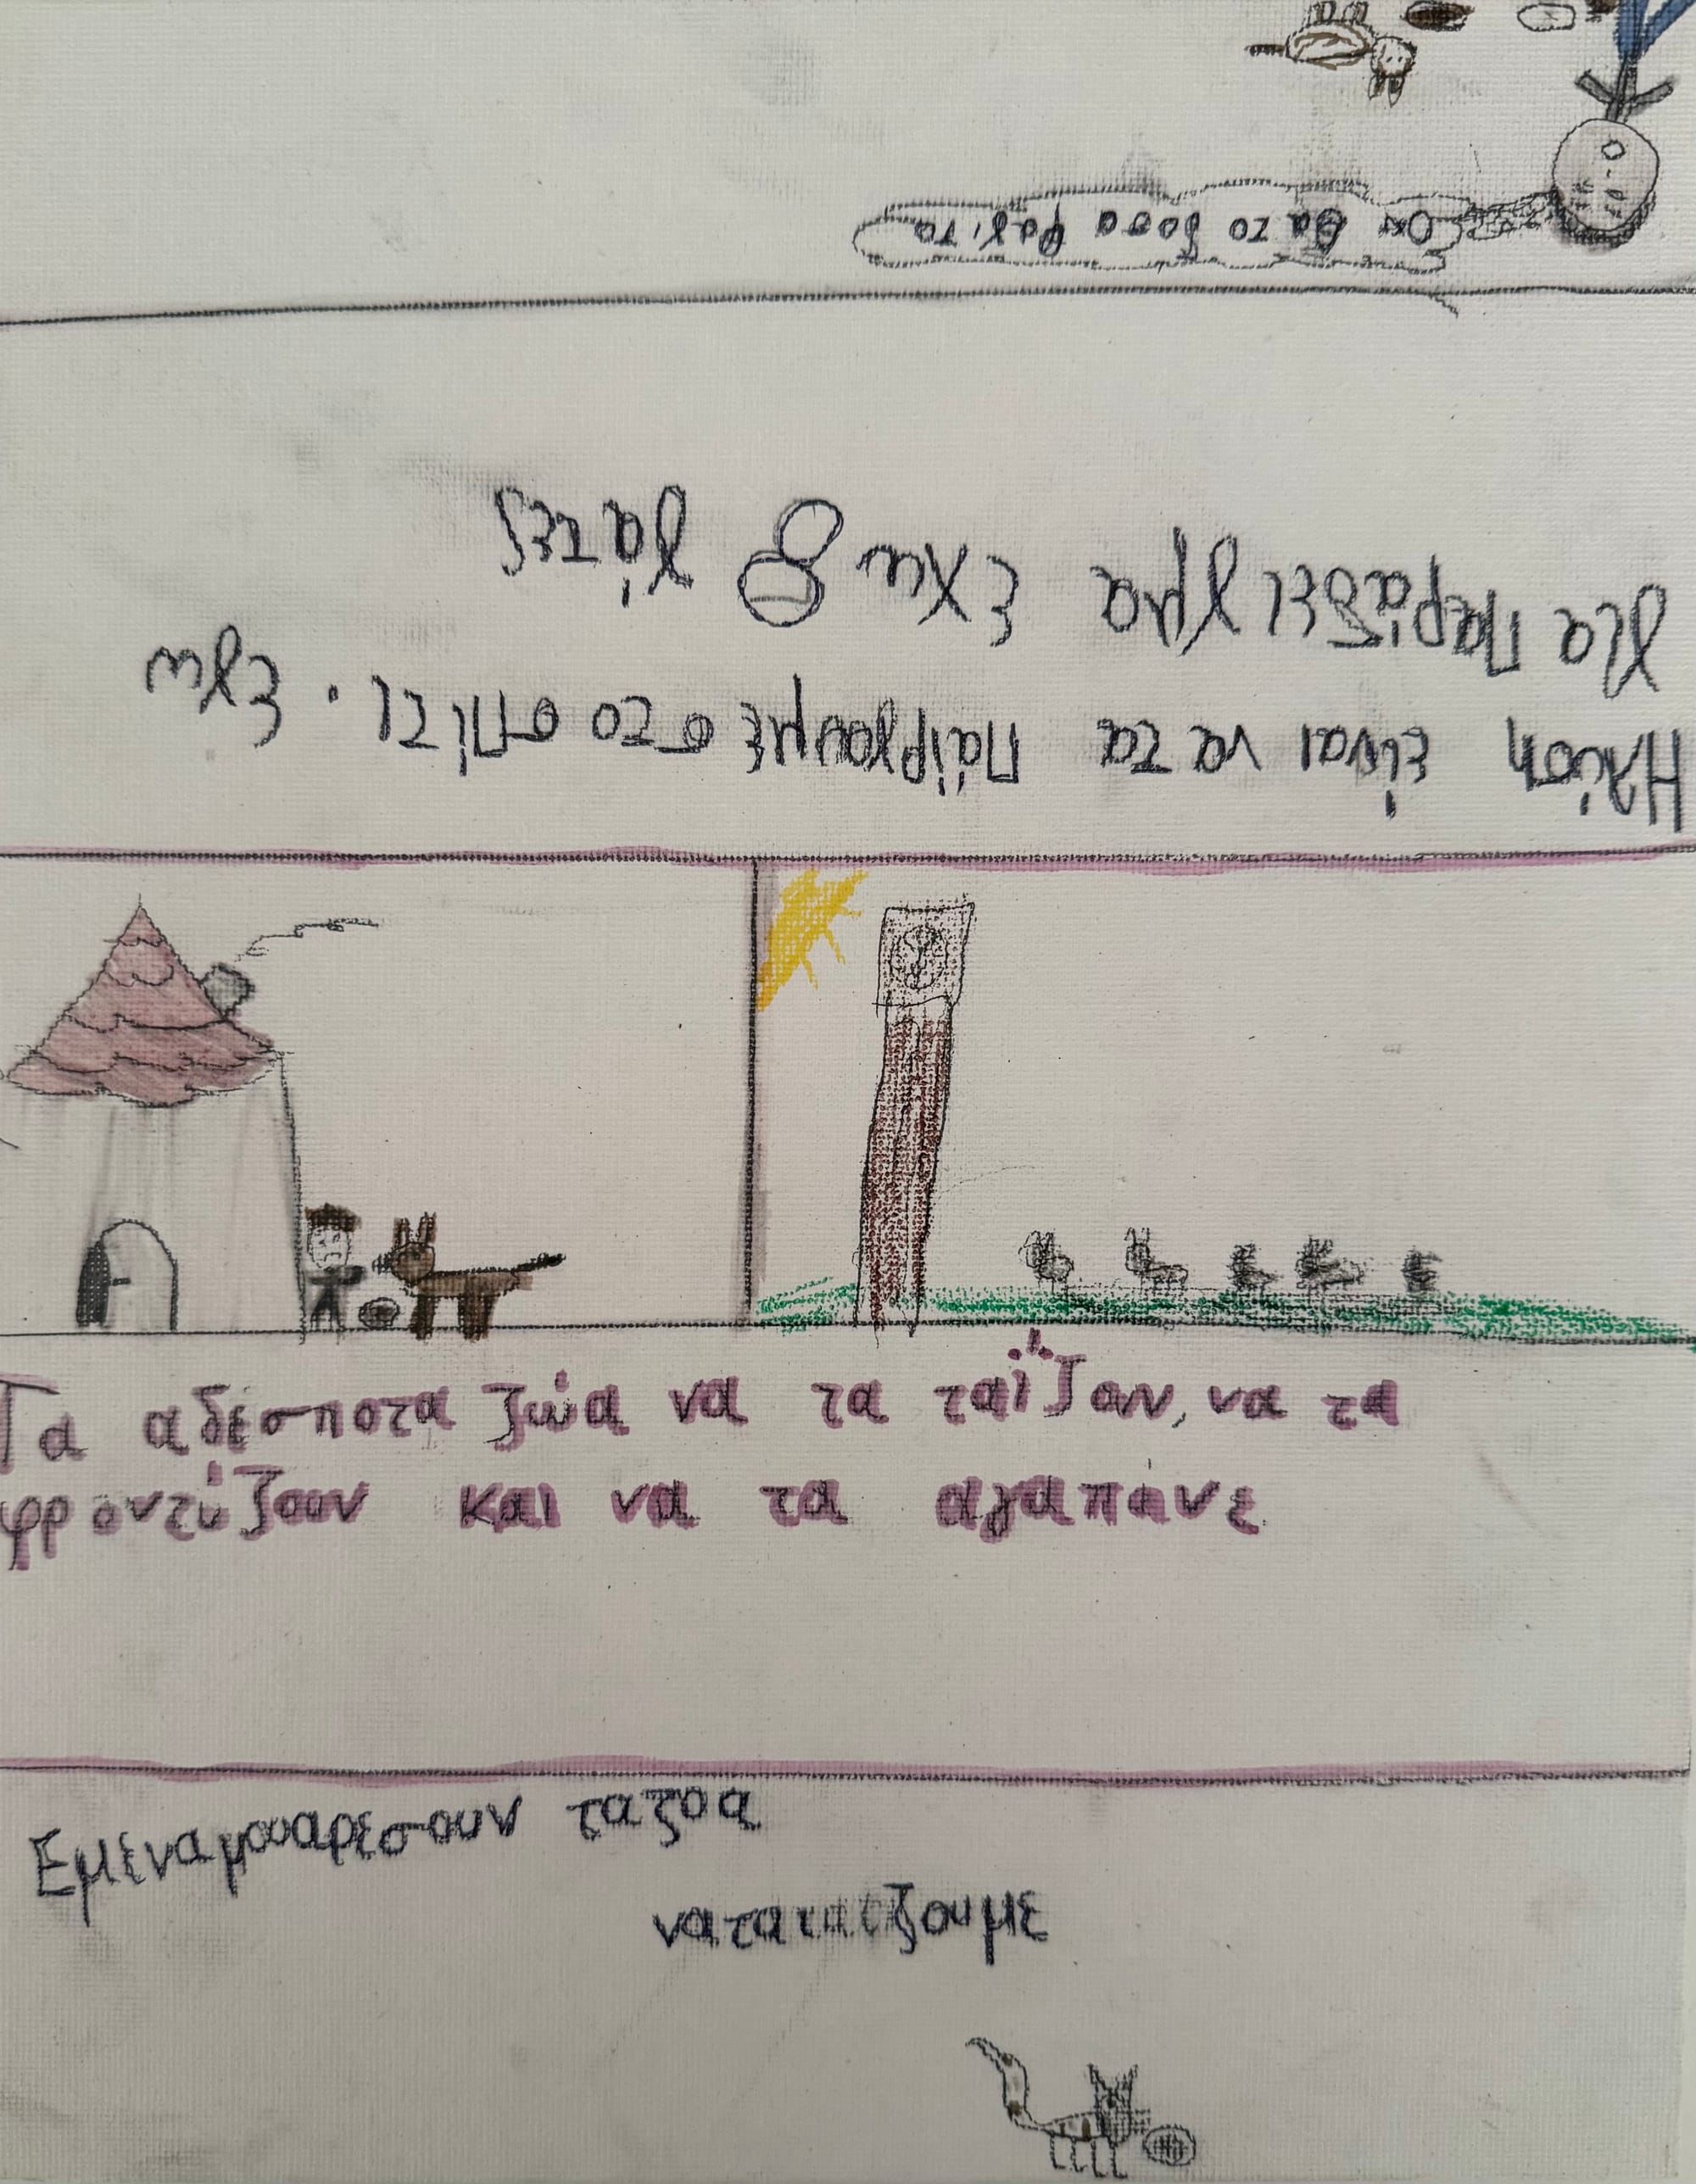 Οχι θα το δοσο φαγιτο
Η λίση είναι να τα παίρνουμε στο σπίτι. Εγω
για παράδειγμα εχω 8 γάτες
Τα αδέσποτα ζώα να τα ταΐζουν, να τα
φροντύζουν και να τα αγαπανε
Εμένα μου αρέσουν τα ζοα
να τα ταϊζουμε